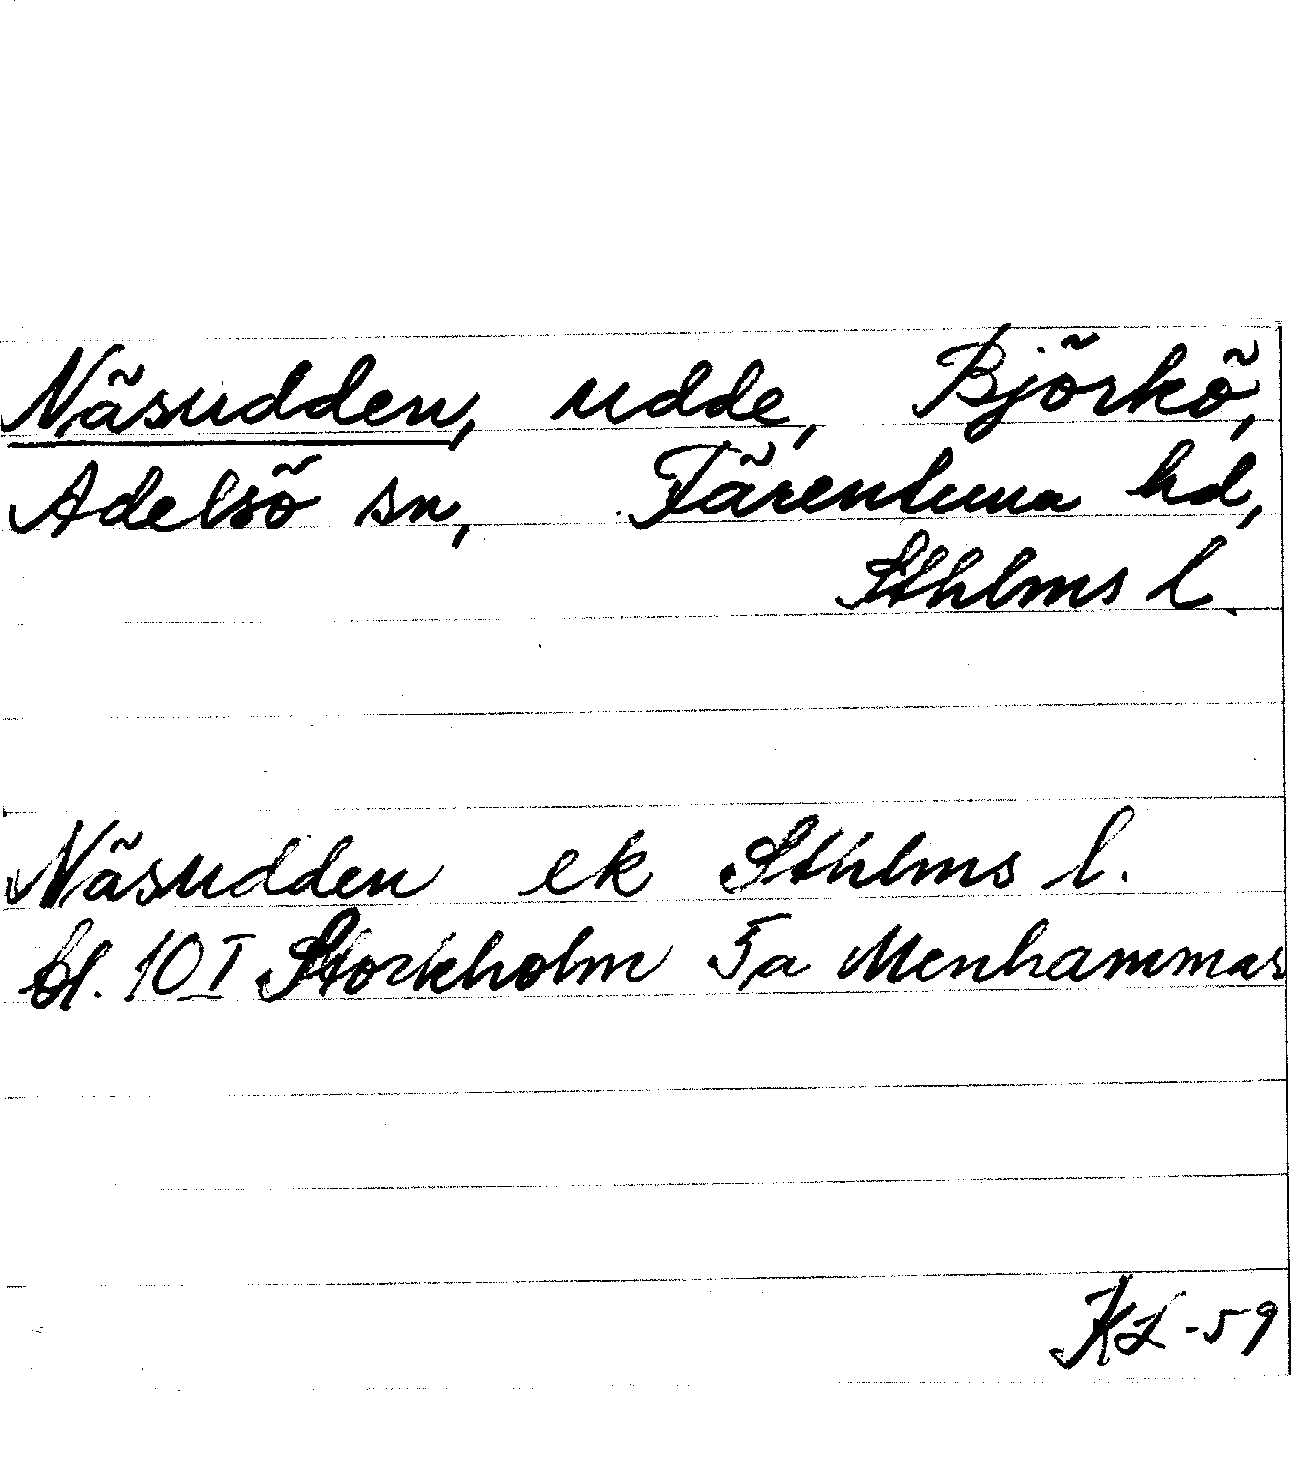 Näsudden, udde, Björkö,
Adelsö sn, Färentuna hd,
Sthlms l.
Näsudden ek Sthlms l.
bl. 10 I Stockholm 5a Menhammar
KL -59